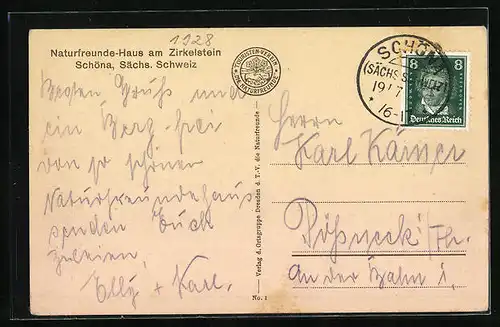 1928
Naturfreunde-Haus am Zirkelstein
Schöna, Sächs. Schweiz
TOURISTEN-VEREIN
DIE NATURFREUNDE
Besten Gruß und
ein Berg-frei
von so schönen
Naturfreundehaus
senden Euch
zuleien,
Elly + Karl.
Verlag d. Ortsgruppe Dresden d. T.-V. die Naturfreunde
No. 1
SCHÖNA
(SÄCHS.
16-1
8 8
Deutsches Reich
Herrn
Karl Kämpf
Pößneck i/Th.
An der Bahn 1.